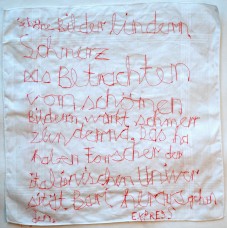 schöne Bilder lindern
Schmerz
Das Betrachten
von schönen
Bildern wirkt schmerz
lindernd, Das ha
haben Forscher der
italienischen Univer
sität Bari herausgefun
den. EXPRESS